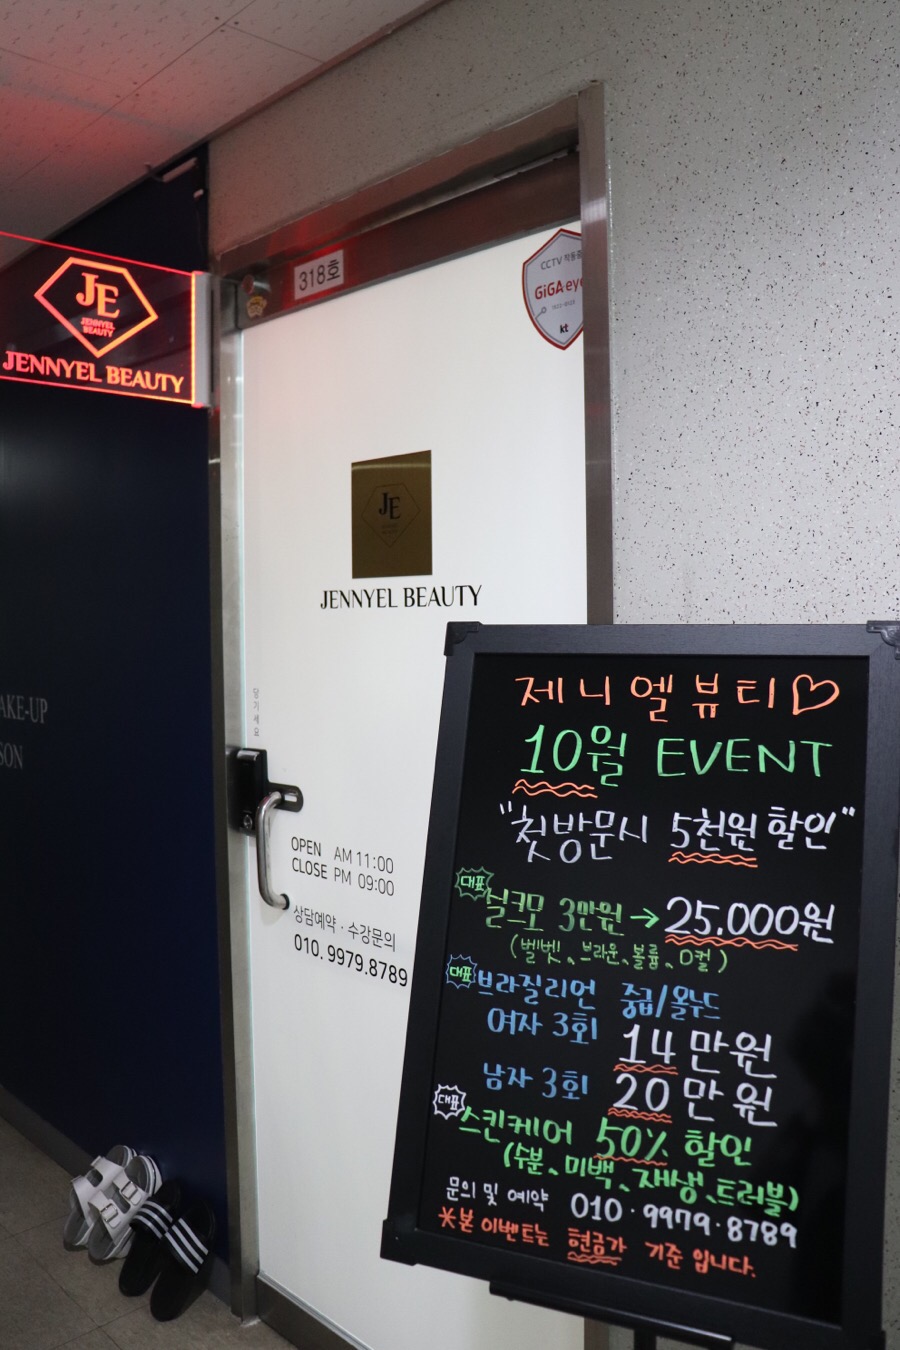 318호
CCTV 작동중
GiGA eye
kt
JE
JENNYEL
BEAUTY
JENNYEL BEAUTY
JE
JENNYEL BEAUTY
AKE-UP
SON
당기세요
OPEN AM 11:00
CLOSE PM 09:00
상담예약 · 수강문의
010. 9979.8789
제니엘뷰티♡
10월 EVENT
"첫방문시 5천원 할인"
대표 실크모 3만원 → 25.000원
(벨벳、브라운、볼륨、D컬)
대표 브라질리언 중급/올누드
여자 3회 14만원
남자 3회 20만원
대표 스킨케어 50% 할인
(수분、미백、재생、트러블)
문의 및 예약 010·9979·8789
*본 이벤트는 현금가 기준 입니다.